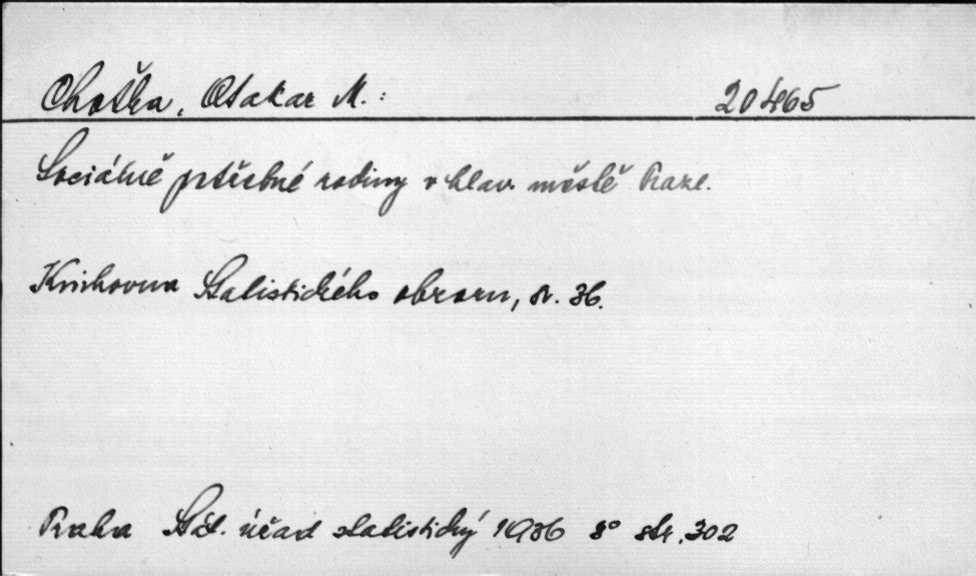 Chotka, Otakar M.: 20465
Sociálně potřebné rodiny v hlav. městě Praze.
Knihovna Statistického obzoru, sv. 36.
Praha Stát. úřad statistický 1936 8° str. 302